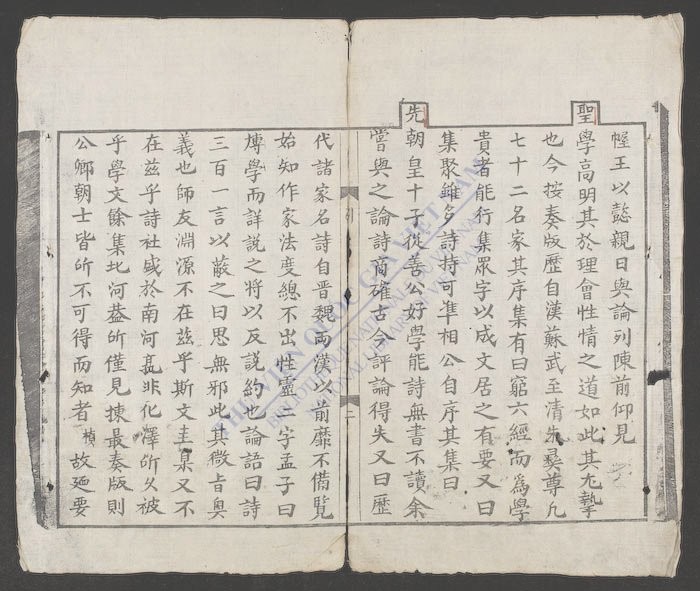 幄王以懿親日與論列陳前仰見
聖學高明其於理會性情之道如此其尤摯
也今按奏版歷自漢蘇武至清朱彝尊凡
七十二名家其序集有曰窮六經而爲學
貴者能行集眾字以成文居之有要又曰
集聚雖多詩持可準相公自序其集曰
先朝皇十子從善公好學能詩無書不讀余
嘗與之論詩商確古今評論得失又曰歷
代諸家名詩自晋魏兩漢以前靡不備覽
始知作家法度總不出性靈二字孟子曰
博學而詳説之將以反説約也論語曰詩
三百一言以蔽之曰思無邪此其微旨奧
義也師友淵源不在茲乎斯文圭臬又不
在茲乎詩社盛於南河髙非化澤所久被
乎學文餘集北河葢所僅見揀最奏版則
公卿朝士皆所不可得而知者楨故廼要
列
二
THƯ VIỆN QUỐC GIA VIỆT NAM
BIBLIOTHÈQUE NATIONALE DU VIETNAM
NATIONAL LIBRARY OF VIETNAM